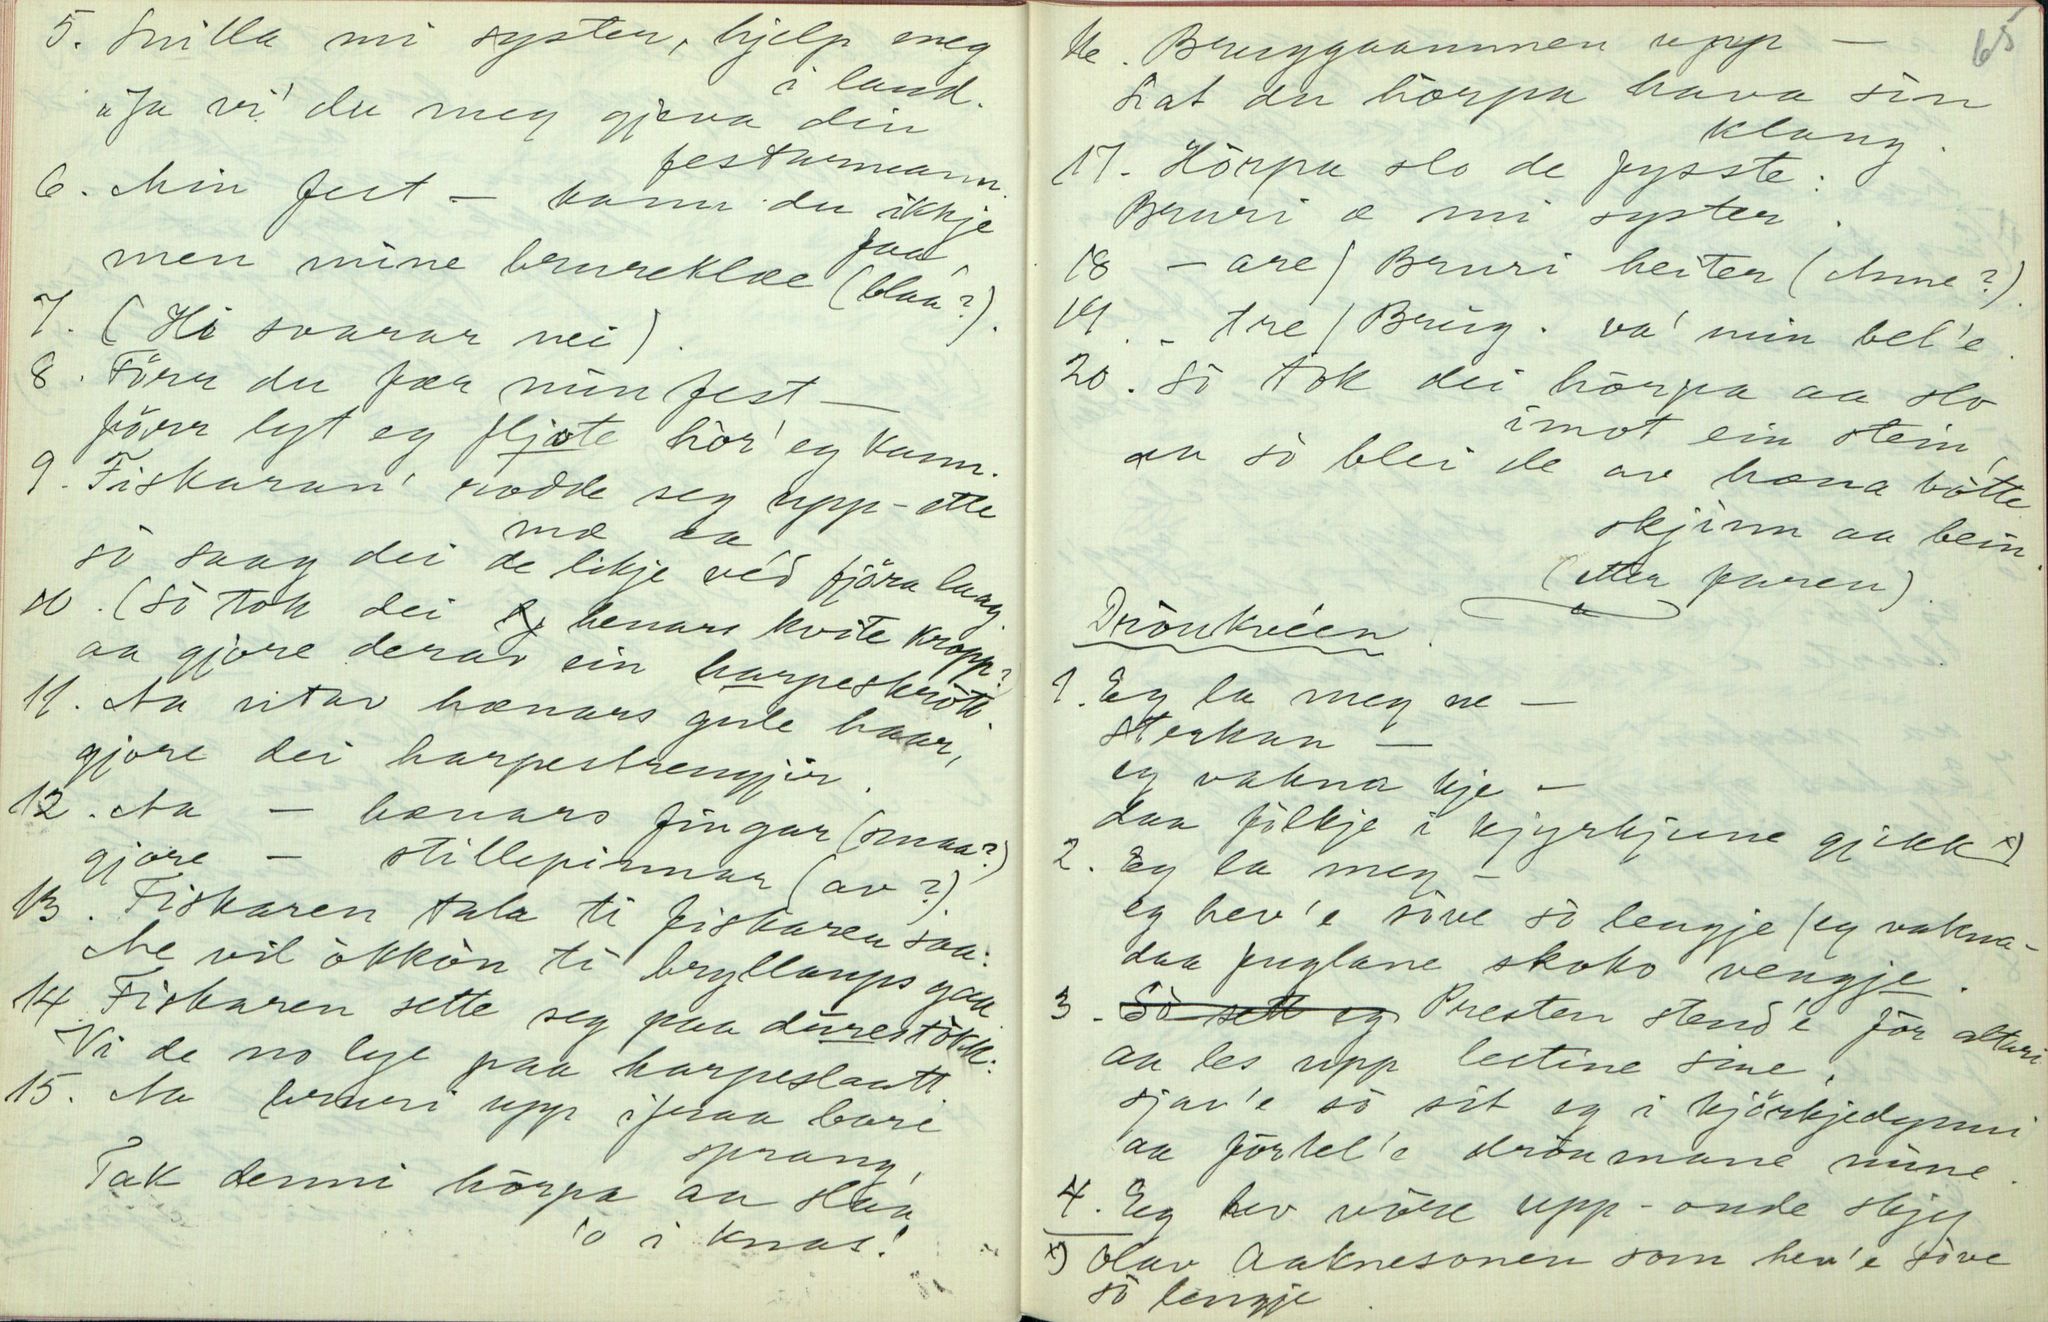 5. Snilla mi syster, hjelp meg
i land.
"Ja vi' du meg gjeva din
festarmann.
6. Min fest — kann du ikkje
faa,
men mine brureklæe (blaa?).
7. (Hi svarar nei).
8. Förr du fær min fest —
förr lyt eg fljote hör' eg kann.
9. Fiskaran' rodde seg upp-ette
mæ aa
so saag dei de likje ved fjöra laag.
10. (So tok dei henars kvite kropp?
aa gjore derav ein harpeskrött.
11. Aa utav hænars gule haar,
gjore dei harpestrengjir.
12. Aa — hænars fingar (smaa?)
gjore — stillepinnar (av?).
13. Fiskaren tala ti fiskaren saa:
Me vil ökkön ti bryllaups gaa
14. Fiskaren sette seg paa dürestökk:
Vi de no lye paa harpeslaatt
15. Aa bruri upp ifraa bori
sprang,
Tak denni hörpa aa slaa
'o i knas!
65
16. Bruggaammen upp —
Lat du hörpa hava sin
klang.
17. Hörpa slo de fysste:
Bruri æ mi syster.
18 — are / Bruri heiter (Anne?).
19. — tre / Brüg. va' min bel'e.
20. So tok dei hörpa aa slo
imot ein stein,
aa so blei de av hæna bötte
skjinn aa bein.
(etter faren).
Dröukvéen.
1. Eg la meg ne —
sterkan —
eg vakna kje —
daa fölkje i kjyrkjune gjikk x)
2. Eg la meg —
eg hev'e söve so lengje / eg vakna —
daa fuglane skoko vengje.
3. So sett eg Presten stend'e för altari
aa les upp lestine sine,
sjav'e so sit eg i kjörkjedynni
aa förtel'e dröumane mine.
4. Eg hev vöre upp-onde skjy
x) Olav Aaknesonen som hev'e söve
so lengje.